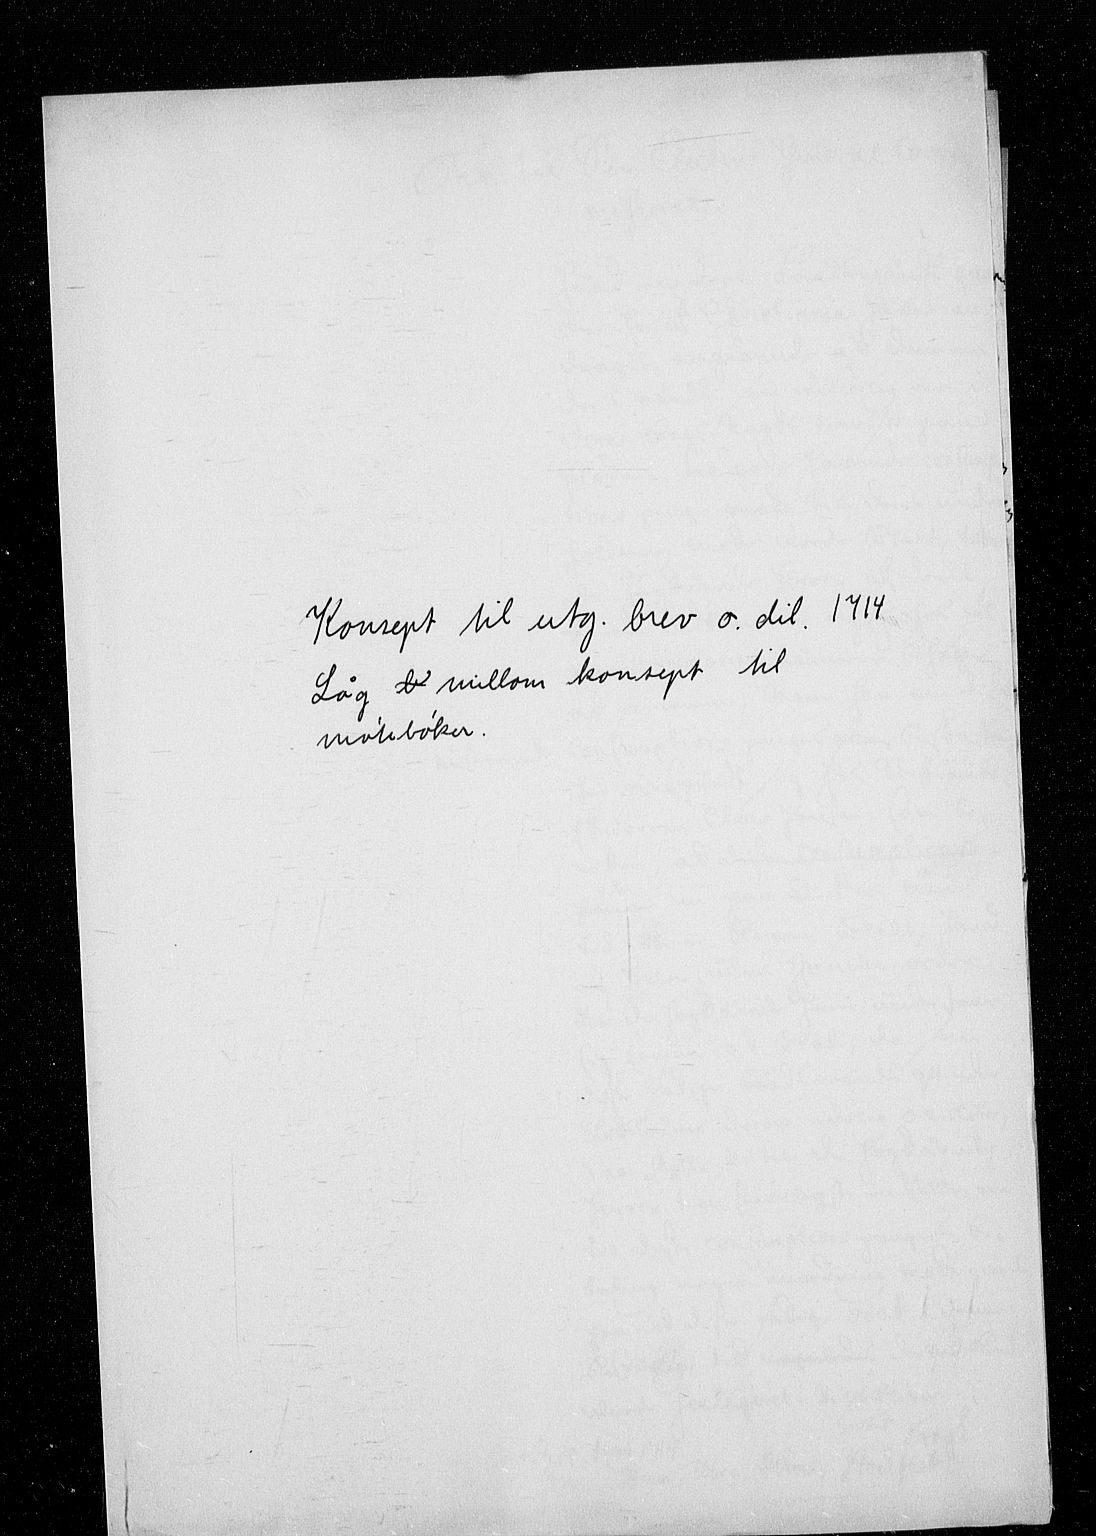 Konsept til utg. brev o. dil. 1714
Låg millom konsept til
møtebøker.